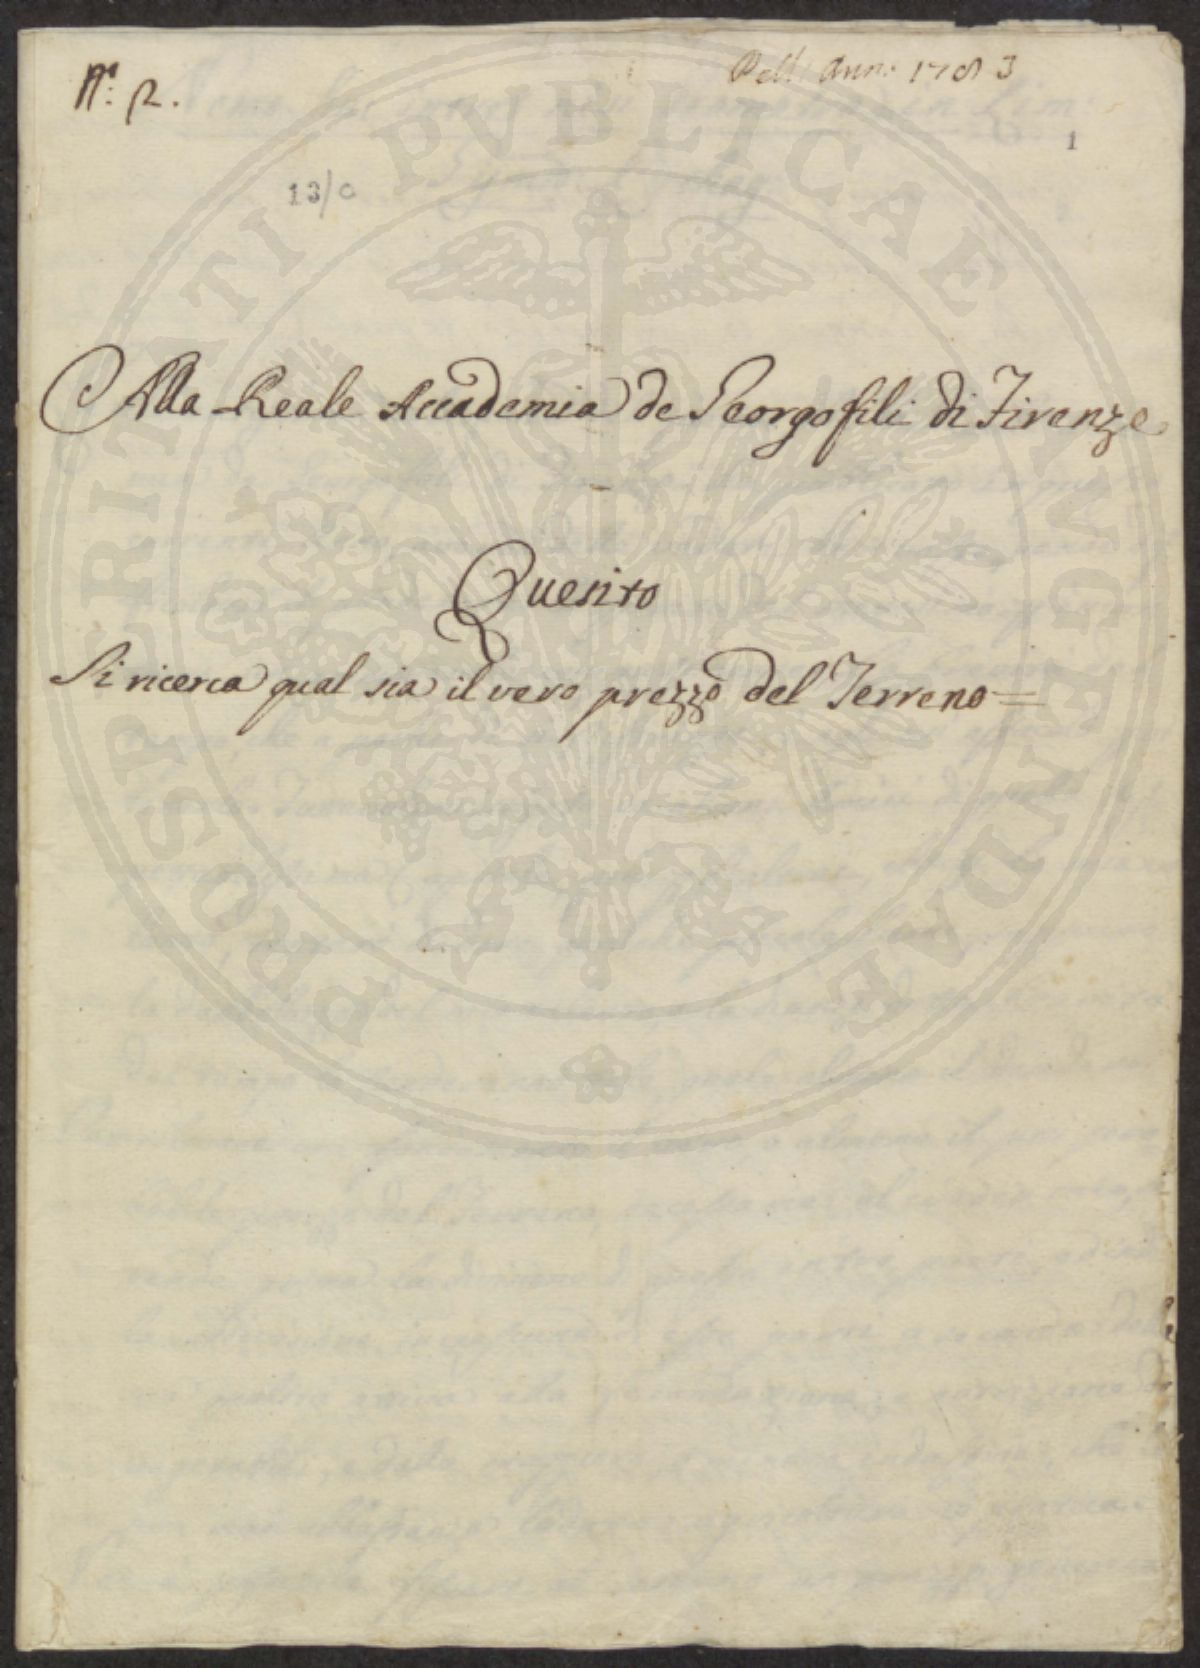 N.º 2.
Dell' Anno 1783
1
13/c
Alla Reale Accademia de Georgofili di Firenze
Quesito
Si ricerca qual sia il vero prezzo del Terreno =
PROSPERITATI PVBLICAE AVGENDAE